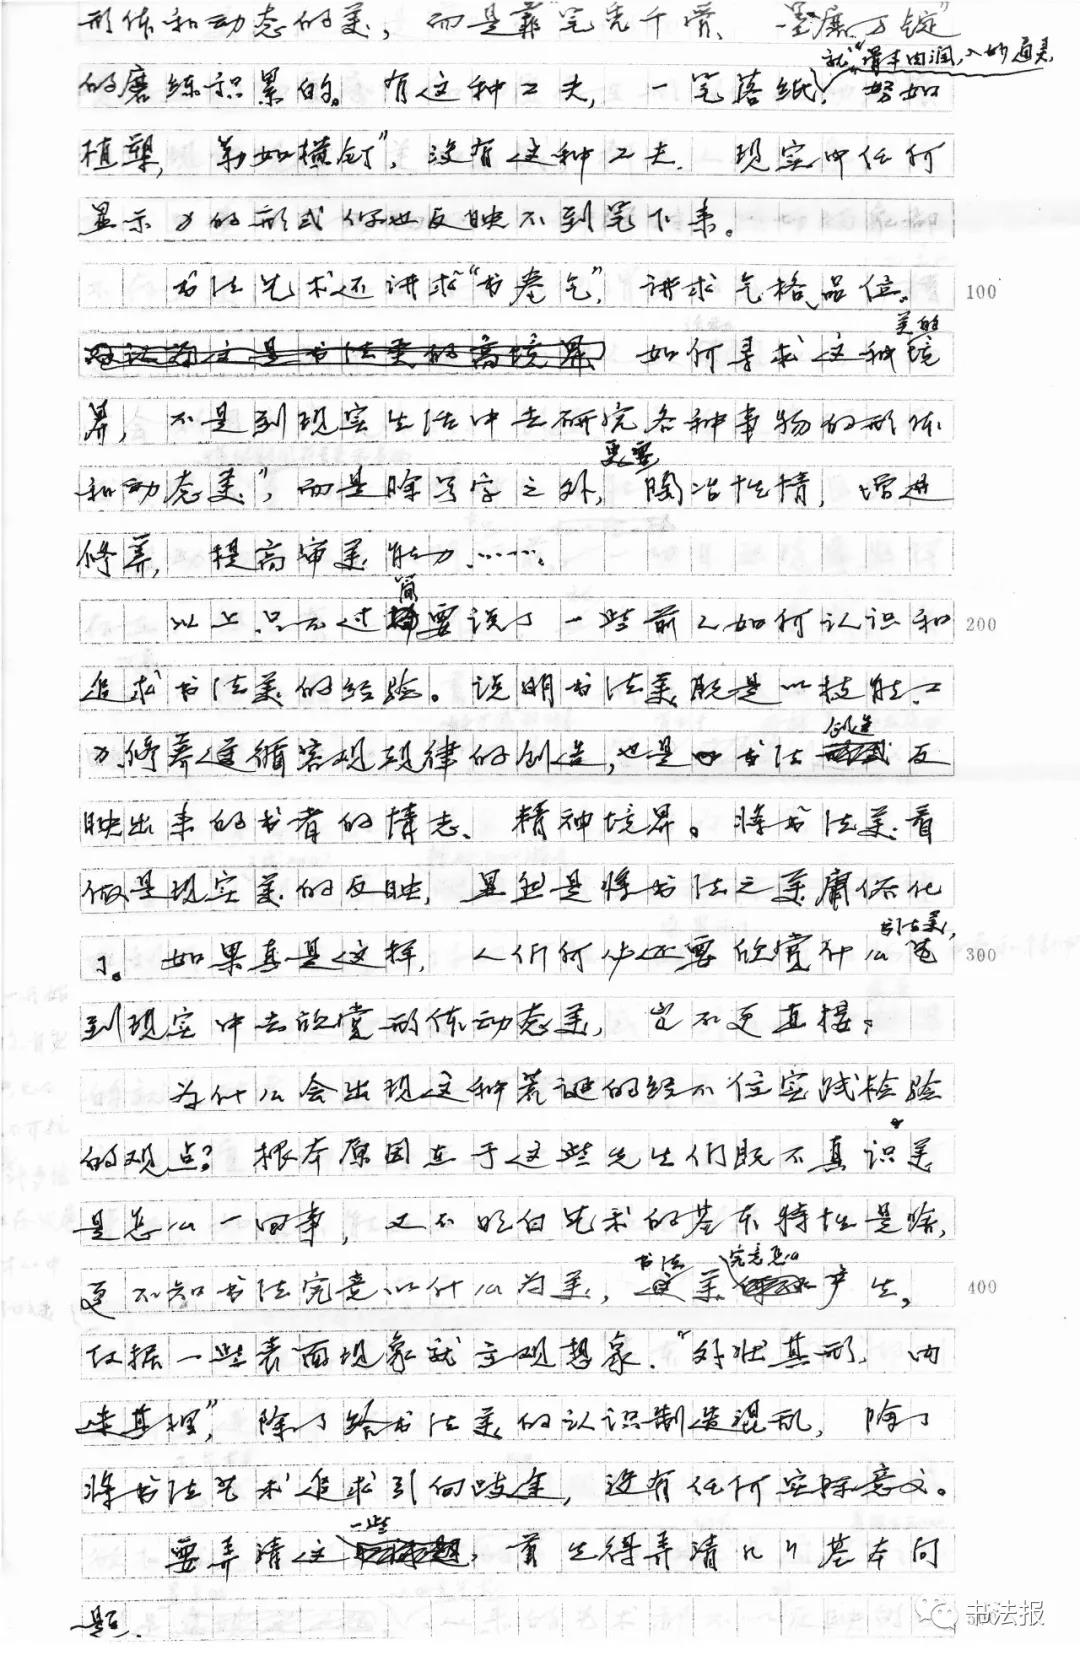 形体和动态的美，而是靠“笔秃千管、墨磨万锭”
就“骨丰肉润，入妙通灵
的磨练积累的。有这种工夫，一笔落纸，努如
植槊，勒如横钉”，没有这种工夫，现实中任何
显示力的形式你也反映不到笔下来。
书法艺术还讲求“书卷气”，讲求气格品位。
100
美的
如何寻求这种境
界，不是到现实生活中去研究各种事物的形体
更要
和动态美”，而是除写字之外，陶冶性情，增进
修养，提高审美能力……。
简
以上只不过要说了一些前人如何认识和
200
追求书法美的经验。说明书法美既是以技能工
创造
力修养遵循客观规律的创造，也是书法反
映出来的书者的情志、精神境界。将书法美看
做是现实美的反映，显然是将书法之美庸俗化
书法美，
了。如果真是这样，人们何必还要欣赏什么
300
到现实中去欣赏形体动态美，岂不更直接？
为什么会出现这种荒诞的经不住实践检验
的观点？根本原因在于这些先生们既不真识美
是怎么一回事，又不明白艺术的基本特性是啥，
书法 究竟怎么
更不知书法究竟以什么为美，美产生，
400
仅据一些表面现象就主观想象，“外状其形，内
迷其理”，除了给书法美的认识制造混乱，除了
将书法艺术追求引向歧途，没有任何实际意义。
一些
要弄清这，首先得弄清几个基本问
题。
书法报